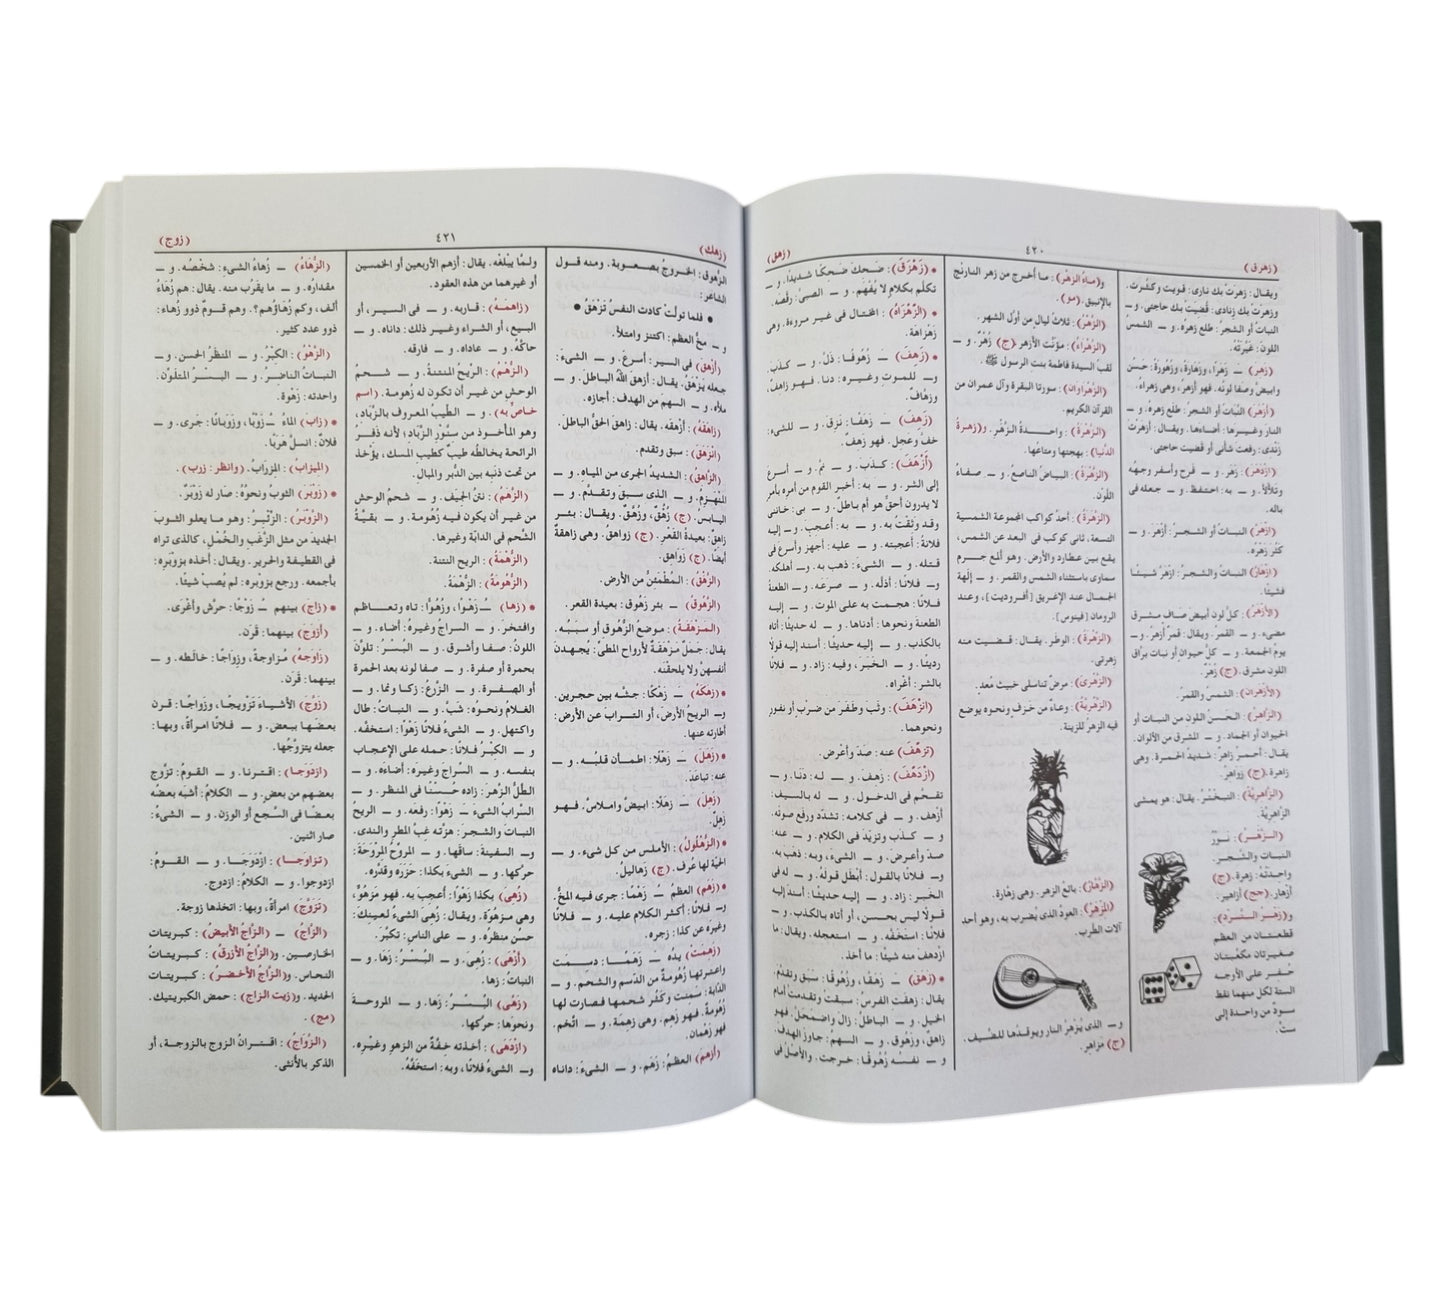 (زهرق)
٤٢٠
(زهق)
ويقال: زهرت بك نارى: قويت وكثرت.
وزهرت بك زنادى: قُضيَتْ بك حاجتى. و —
النباتُ أو الشجرُ: طلع زهره. و — الشمسُ
اللونَ: غيّرَتْه.
(زهِر) — زَهَرًا، وزَهارة، وزُهورة: حَسُنَ
وابيضَّ وصفا لونُه. فهو أزهرُ، وهى زهراءُ.
(أزهَرَ) النباتُ أو الشجرُ: طلع زهره. و —
النار وغيرها: أضاءها. ويقال: أزهرتَ
زَندى: رفعت شأنى أو قضيت حاجتى.
(ازْدَهَر): زَهَر. و — فرح وأسفر وجهُه
وتلألأ. و — به: احتفظ. و — جعله فى
باله.
(ازْهَرّ) النباتُ أو الشجرُ: أزهرَ. و —
كثُر زهرُه.
(ازْهَارَّ) النباتُ والشجرُ: ازهرَّ شيئًا
فشيئًا.
(الأزهَرُ): كلُّ لون أبيضَ صافٍ مشرق
مضىء. و — القمرُ. ويقال: قمرٌ أزهرُ. و —
يومُ الجمعة. و — كلُّ حيوانٍ أو نبات برَّاق
اللون مشرق. (ج) زُهْرٌ.
(الأزهران): الشمسُ والقمرُ.
(الزاهرُ): الحَسَنُ اللون من النبات أو
الحيوان أو الجماد. و — المشرق من الألوان.
يقال: أحمرُ زاهرٌ: شديدُ الحمرة. وهى
زاهرة. (ج) زواهرُ.
(الزاهريَّةُ): التبخترُ. يقال: هو يمشى
الزاهريَّة.
(الزَّهْرُ): نَوْرُ
النبات والشجر.
واحدتُه: زهرة. (ج)
أزهار. (جج) أزاهير.
و(زهر النرد):
قطعتان من العظم
صغيرتان مكعَّبتان
حُفر على الأوجه
الستة لكل منهما نقط
سود من واحدة إلى
ستّ.
و(ماءُ الزهر): ما أُخرج من زهر النارنج
بالإنبيق. (مو)
(الزُّهْرُ): ثلاثُ ليالٍ من أوّل الشهر.
(الزهراءُ): مؤنّث الأزهر. (ج) زُهْر. و —
لقبُ السيدة فاطمة بنت الرسول ﷺ.
(الزهراوان): سورتا البقرة وآل عمران من
القرآن الكريم.
(الزَّهْرَةُ): واحدةُ الزهر. و(زهرةُ
الدُّنيا): بهجتها ومتاعها.
(الزُّهْرَةُ): البياضُ الناصعُ. و — صفاءُ
اللَّون.
(الزُّهَرَةُ): أحدُ كواكب المجموعة الشمسية
التسعة، ثانى كوكب فى البعد عن الشمس،
يقع بين عطارد والأرض. وهو ألمع جرم
سماوى باستثناء الشمس والقمر. و — إلَهَة
الجمال عند الإغريق [أفروديت]، وعند
الرومان [فينوس].
(الزِّهْرَةُ): الوطرُ. يقال: قضيتُ منه
زهرتى.
(الزُّهْرى): مرضٌ تناسلى خبيث مُعد.
(الزهريَّةُ): وعاءٌ من خزف ونحوه يوضع
فيه الزهرُ للزينة.
(الزَّهَّارُ): بائع الزهر. وهى زهّارة.
(المِزْهَرُ): العودُ الذى يُضرب به، وهو أحد
آلات الطرب.
و — الذى يُزهرُ النار ويوقدُها للضَّيف.
(ج) مَزاهر.
* (زَهْزَقَ): ضحكَ ضحكًا شديدًا. و —
تكلَّم بكلامٍ لا يُفهَم. و — الصبىَّ: رقَّصه.
* (الزِّهْزَاهُ): المختال فى غير مروءة. وهى
زَهزاهة.
* (زَهَفَ) — زُهُوفًا: ذَلَّ. و — كذب.
و — للموتِ وغيرِه: دنا. فهو زاهفٌ،
وزهّافٌ.
(زَهِفَ) — زَهَفًا: نَزِق. و — للشىء:
خفَّ وعجِل. فهو زَهِفٌ.
(أزْهَفَ): كذب. و — نمَّ. و — أسرعَ
إلى الشر. و — به: أخبر القوم من أمره بأمر
لا يدرون أحقٌّ هو أم باطل. و — بى: خاننى
وقد وثقتُ به. و — به: أُعجِبَ. و — إليه
فلانةُ: أعجبته. و — عليه: أجهز وأسرع فى
قتله. و — الشىءَ: ذهب به. و — أهلكه.
و — فلانًا: أذلَّه. و — صرعه. و — الطعنةُ
فلانًا: هجمت به على الموت. و — إليه
الطعنةَ ونحوها: أدناها. و — له حديثًا: أتاه
بالكذب. و — إليه حديثًا: أسند إليه قولًا
رديئًا. و — الخبرَ، وفيه: زاد. و — فلانًا
بالشر: أغراه.
(انْزَهَفَ): وثَبَ وطَفَرَ من ضربٍ أو نفورٍ
ونحوهما.
(تَزَهَّفَ) عنه: صدَّ وأعرض.
(ازْدَهَفَ): زَهِفَ. و — له: دَنا. و —
تقحَّم فى الدخول. و — له بالسيف:
أزهف. و — فى كلامه: تشدَّد ورفع صوته.
و — كذب وتزيَّد فى الكلام. و — عنه:
صدَّ وأعرض. و — الشىءَ، وبه: ذهب به.
و — فلانًا بالقول: أبطل قولَه. و — له فى
الخبر: زاد. و — إليه حديثًا: أسند إليه
قولًا ليس بحسن، أو أتاه بالكذب. و —
فلانًا: استخفَّه. و — استعجله. ويقال: ما
ازدهف منه شيئًا: ما أخذ.
* (زهق) — زهقًا، وزُهوقًا: سبَق وتقدَّمَ.
يقال: زهقت الفرسُ: سبقت وتقدمت أمامَ
الخيل. و — الباطلُ: زالَ واضمحلَّ. فهو
زاهقٌ، وزَهُوق. و — السهمُ: جاوز الهدف.
و — نفسُه زُهُوقًا: خرجت. والأصلُ فى
(زهك)
٤٢١
(زوج)
الزُّهوق: الخروجُ بصعوبة. ومنه قول
الشاعر:
● فلما تولَّتْ كادت النفسُ تَزْهَقُ ●
و — مخُّ العظم: اكتنز وامتلأ.
(أزْهَقَ) فى السير: أسرعَ. و — الشىءَ:
جعله يَزْهَقُ. يقال: أزهقَ اللهُ الباطلَ. و —
ملأه. و — السهمَ من الهدف: أجازه.
(زاهَقَهُ): أزهقه. يقال: زاهق الحقُّ الباطلَ.
(انْزَهَقَ): سبق وتقدم.
(الزاهقُ): الشديدُ الجرى من المياه. و —
المنهزمُ. و — الذى سبق وتقدَّم. و —
اليابس. (ج) زُهُقٌ، وزُهَّقٌ. ويقال: بئر
زاهقٌ: بعيدةُ القعر. (ج) زواهقُ. وهى زاهقةٌ
أيضًا. (ج) زَواهِق.
(الزَّهَقُ): المُطْمَئنُّ من الأرض.
(الزَّهُوقُ) — بئر زَهُوق: بعيدة القعر.
(المَزْهَقَةُ): موضعُ الزُّهوق أو سببُه.
يقال: جمَلٌ مَزهقةٌ لأرواح المطىِّ: يُجهدنَ
أنفسَهنَّ ولا يلحقْنَه.
* (زهكهُ) — زَهْكًا: جشّه بين حجرين.
و — الريحُ الأرضَ، أو الترابَ عن الأرض:
أطارته عنها.
* (زَهَلَ) — زَهْلًا: اطمأن قلبُه. و —
عنه: تباعَدَ.
(زَهِلَ) — زَهَلًا: ابيضَّ واملاسَّ. فهو
زَهِلٌ.
* (الزُّهْلُولُ): الأملس من كل شىء. و —
الحيَّة لها عُرف. (ج) زَهاليلُ.
* (زَهَم) العظمُ — زَهْمًا: جرى فيه المخُّ.
و — فلانًا: أكثر الكلام عليه. و — فلانًا
وغيره عن كذا: زجره.
(زَهِمَتْ) يدُه — زَهَمًا: دسِمت
واعترتها زُهُومةٌ من الدَّسم والشحم. و —
الدَّابة: سَمِنت وكثُر شحمها فصارت لها
زُهُومةٌ. فهو زَهِم. وهى زهمة. و — اتَّخم.
فهو زَهْمان.
(أزْهَمَ) العظمُ: زَهَم. و — الشىءَ: داناه
ولمَّا يبلغه. يقال: أزهم الأربعين أو الخمسين
أو غيرهما من هذه العقود.
(زاهمَهُ): قاربه. و — فى السير، أو
البيع، أو الشراء وغير ذلك: داناه. و —
حاكَّه. و — عاداه. و — فارقه.
(الزُّهْمُ): الريحُ المنتنةُ. و — شحمُ
الوحشِ من غير أن تكون له زُهومة. (اسم
خاصٌّ به). و — الطِّيبُ المعروف بالزَّباد،
وهو المأخوذ من سنَّور الزَّباد؛ لأنه ذَفِرُ
الرائحة يخالطُه طيبٌ كطيب المسك، يؤخذ
من تحت ذنبه بين الدُّبر والمبال.
(الزَّهَمُ): نتنُ الجِيَف. و — شحمُ الوحش
من غير أن يكون فيه زُهُومة. و — بقيَّةُ
الشَّحم فى الدابَّة وغيرها.
(الزُّهْمَةُ): الريح المنتنة.
(الزُّهُومَةُ): الزُّهْمَةُ.
* (زها) — زَهْوًا، وزُهُوًّا: تاه وتعاظم
وافتخر. و — السراجُ وغيرهُ: أضاء. و —
اللونُ: صفا وأشرق. و — البُسْرُ: تلوَّنَ
بحمرة أو صفرة. و — صفا لونه بعد الحمرة
أو الصفرة. و — الزَّرعُ: زكا ونما. و —
الغلامُ ونحوهُ: شبَّ. و — النباتُ: طال
واكتهل. و — الشىءُ فلانًا زَهْوًا: استخفَّه.
و — الكبرُ فلانًا: حمله على الإعجاب
بنفسه. و — السِّراجَ وغيره: أضاءَه. و —
الطَّلُّ الزَّهرَ: زاده حُسنًا فى المنظر. و —
السَّرابُ الشىءَ — زَهْوًا: رفعه. و — الريحُ
النباتَ والشجرَ: هزّته غِبَّ المطر والندى.
و — السفينةَ: ساقها. و — المروِّحُ المِروحَةَ:
حركها. و — الشىءَ بكذا: حزَره وقدَّره.
(زُهِىَ) بكذا زَهْوًا: أُعجب به. فهو مَزهُوٌّ،
وهى مزهوَّة. ويقال: زُهى الشىءُ لعينيك:
حسُن منظرُه. و — على الناس: تكبَّر.
(أزْهَى): زُهِىَ. و — البُسْرُ: زها. و —
النباتُ: زها.
(زهَّى) البُسْرُ: زها. و — المروحةَ
ونحوَها: حرَّكها.
(ازْدَهَى): أخذته خِفَّةٌ من الزهو وغيره.
و — الشىءُ فلانًا، وبه: استخفَّهُ.
(الزُّهَاءُ) — زُهاءُ الشىء: شخْصُه. و —
مقدارُه. و — ما يقرُب منه. يقال: هم زُهاءُ
ألف، وكم زُهاؤهم؟. وهم قومٌ ذوو زُهاء:
ذوو عدد كثير.
(الزَّهْوُ): الكِبْرُ. و — المنظرُ الحسن. و —
النباتُ الناضرُ. و — البُسْرُ المتلوِّن.
واحدته: زَهْوة.
* (زاب) الماءُ — زَوْبًا، وزَوَبانًا: جرى. و —
فلانٌ: انسلَّ هَرَبًا.
(الميزابُ): المِزْرابُ. (وانظر: زرب).
* (زَوْبَرَ) الثوبُ ونحوُه: صار له زَوْبَرٌ.
(الزَّوْبَرُ): الزِّئبرُ: وهو ما يعلو الثوبَ
الجديدَ من مثل الزَّغبِ والخَمْل، كالذى تراه
فى القطيفة والحرير. ويقال: أخذه بزَوْبَرِه:
بأجمعه. ورجع بزوْبره: لم يُصب شيئًا.
* (زاج) بينهم — زَوْجًا: حرَّش وأغْرى.
(أزوَجَ) بينهما: قَرَن.
(زَاوَجَهُ) مُزاوجةً، وزِواجًا: خالطه. و —
بينهما: قَرَن.
(زوَّج) الأشياءَ تَزويجًا، وزَواجًا: قرن
بعضها ببعض. و — فلانًا امرأةً، وبها:
جعله يتزوَّجُها.
(ازدوجا): اقترنا. و — القومُ: تزوَّج
بعضهم من بعضٍ. و — الكلامُ: أشبَه بعضُه
بعضًا فى السَّجع أو الوزن. و — الشىءُ:
صار اثنين.
(تزاوجا): ازدَوَجَا. و — القومُ:
ازدوجوا. و — الكلامُ: ازدوج.
(تَزَوَّجَ) امرأةً، وبها: اتخذها زوجة.
(الزَّاجُ) — (الزَّاجُ الأبيضُ): كبريتات
الخارصين. و(الزَّاجُ الأزرقُ): كبريتاتُ
النحاس. و(الزَّاجُ الأخضرُ): كبريتات
الحديد. و(زيت الزاج): حمض الكبريتيك.
(مج).
(الزَّوَاجُ): اقترانُ الزوج بالزوجة، أو
الذكر بالأنثى.